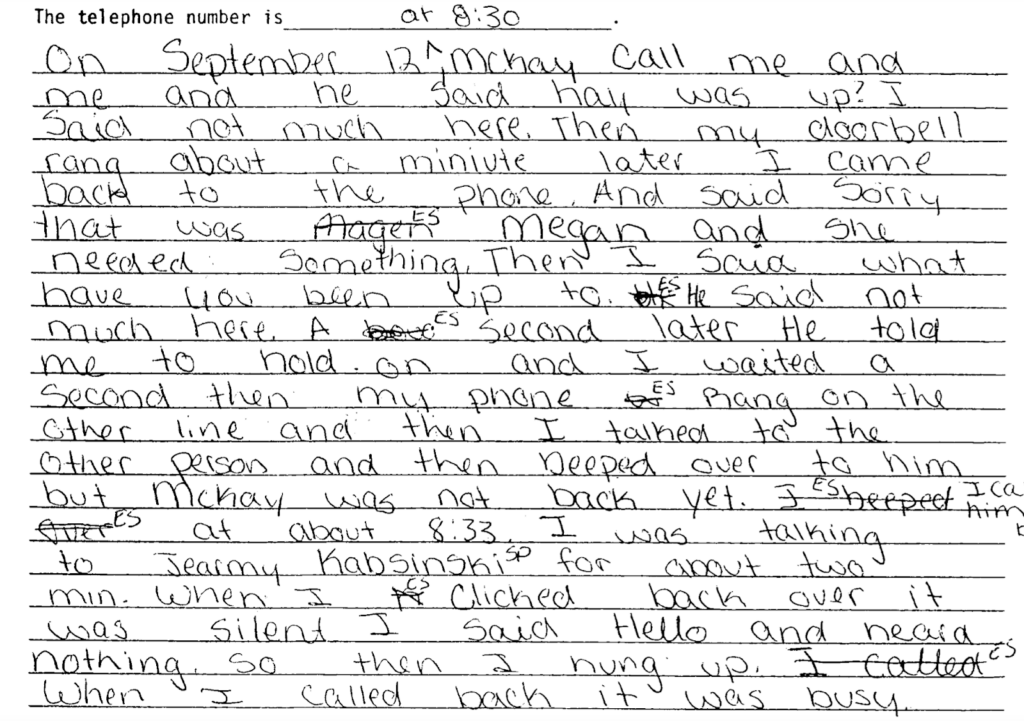 The telephone number is at 8:30 .
On September 12 ^, Mckay Call me and
me and he said hay was up? I
Said not much here. Then my doorbell
rang about a miniute later I came
back to the phone. And said Sorry
that was Magen ES Megan and she
needed something. Then I Said what
have you been up to. ES He said not
much here. A ES second later He told
me to hold on and I waited a
second then my phone ES Rang on the
other line and then I talked to the
other person and then beeped over to him
but Mckay was not back yet. I ES beeped I ca
him
over ES at about 8:33. I was talking
to Jearmy Kabsinski SP for about two
min. When I ES Clicked back over it
was silent I said Hello and heard
nothing. So then I hung up. I called ES
When I called back it was busy.